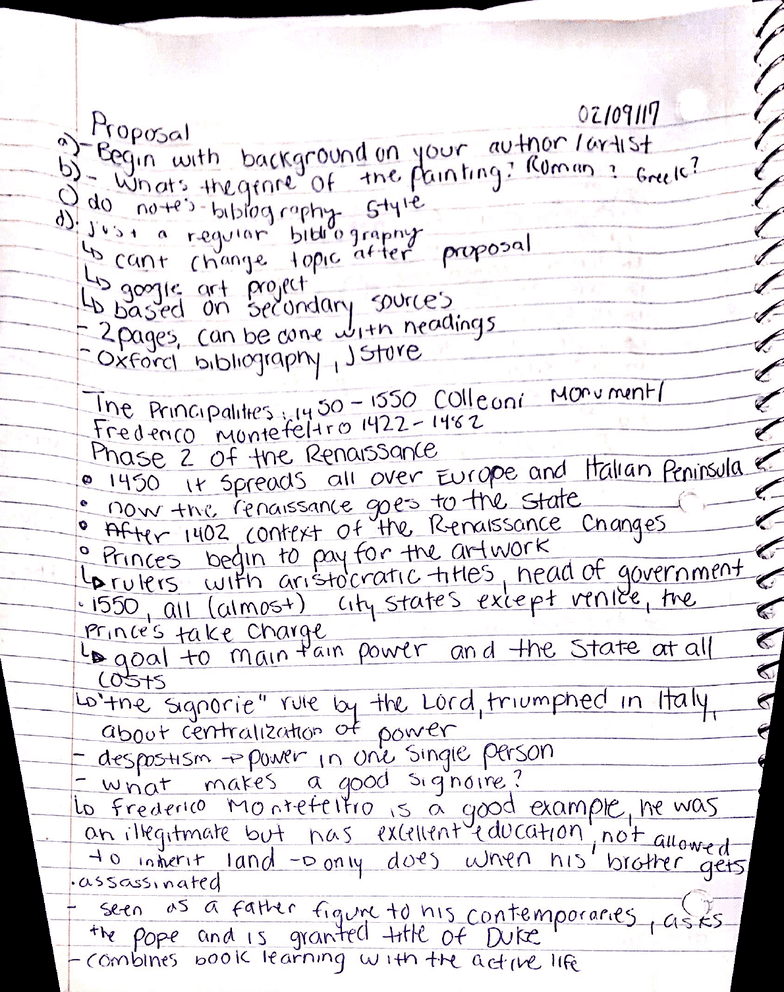 02/09/17
Proposal
a) - Begin with background on your author/artist
b) - Whats the genre of the painting? Roman? Greek?
c) do notes-bibliography style
d). just a regular bibliography
↳ cant change topic after proposal
↳ google art project
↳ based on secondary sources
- 2pages, can be done with headings
- Oxford bibliography, JStore
The Principalities: 1450-1550 Colleoni Monument/
Frederico Montefeltro 1422-1482
Phase 2 of the Renaissance
• 1450 it spreads all over Europe and Italian Peninsula
• now the renaissance goes to the state
• After 1402 context of the Renaissance Changes
• Princes begin to pay for the artwork
↳ rulers with aristocratic titles, head of government
· 1550, all (almost) city states except venice, the
Princes take charge
↳ goal to maintain power and the State at all
costs
↳ "the signorie" rule by the Lord, triumphed in Italy,
about centralization of power
- despostism → power in one single person
- what makes a good signoire?
↳ Frederico Montefeltro is a good example, he was
an illegitmate but has excellent education, not allowed
to inherit land → only does when his brother gets
· assassinated
- seen as a father figure to his contemporaries, asks
the Pope and is granted title of Duke
- combines book learning with the active life